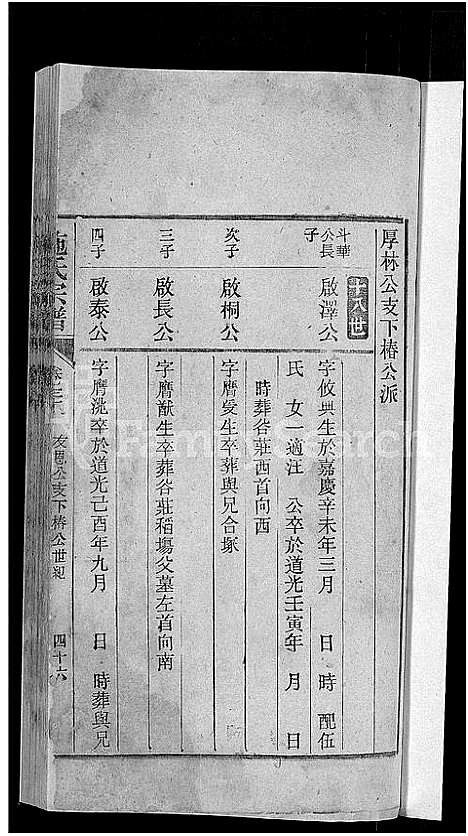 厚林公支下椿公派
十八世
斗華公長子
啟澤公
字攸興生於嘉慶辛未年三月 日 時 配伍
氏 女一適汪 公卒於道光壬寅年 月 日
時葬谷莊西首向西
次子
啟桐公
字膺爰生卒葬與兄合塚
三子
啟長公
字膺猷生卒葬谷莊稻塲父墓左首向南
四子
啟泰公
字膺洮卒於道光己酉年九月 日 時葬與兄
氏宗譜
公支下椿公世紀
四十六
FamilySearch